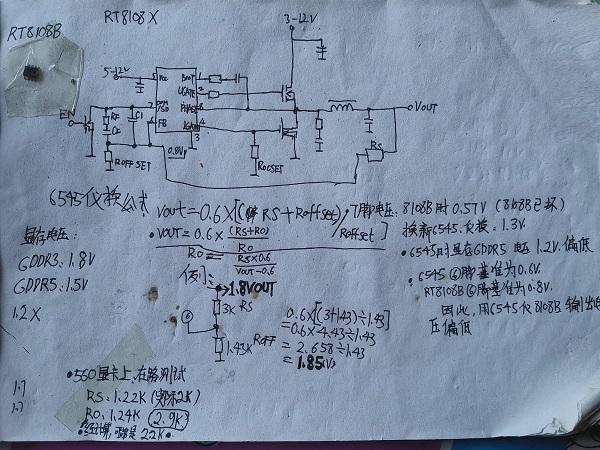 RT8108B
RT8108X
3-12V
5-12V
Vcc
BOOT
UGATE
PHASE
LGATE
FB
EN
RF
CF
C1
0.8V
ROFFSET
ROCSET
RS
VOUT
6545代换公式
VOUT=0.6×[(RS+Roffset)/Roffset]
•VOUT=0.6×(RS+RO)/RO
RO=RS×0.6/VOUT-0.6
7脚电压:8108B时0.57V(8108B已坏)
换新6545代换:1.3V
•6545时显存GDDR5电压1.2V.偏低
•6545⑥脚基准为0.6V.
RT8108B⑥脚基准为0.8V.
因此,用6545代8108B输出电压偏低
显存电压:
GDDR3:1.8V
GDDR5:1.5V
1.2X
例:
1.8VOUT
3K RS
⑥
1.43K Roff
0.6×[(3+1.43)÷1.43]
=0.6×4.43÷1.43
=2.658÷1.43
=1.85(V)
•560显卡上,在路测试
RS:1.22K(实际2K)
RO:1.24K(2.9K)
1.7
1.7